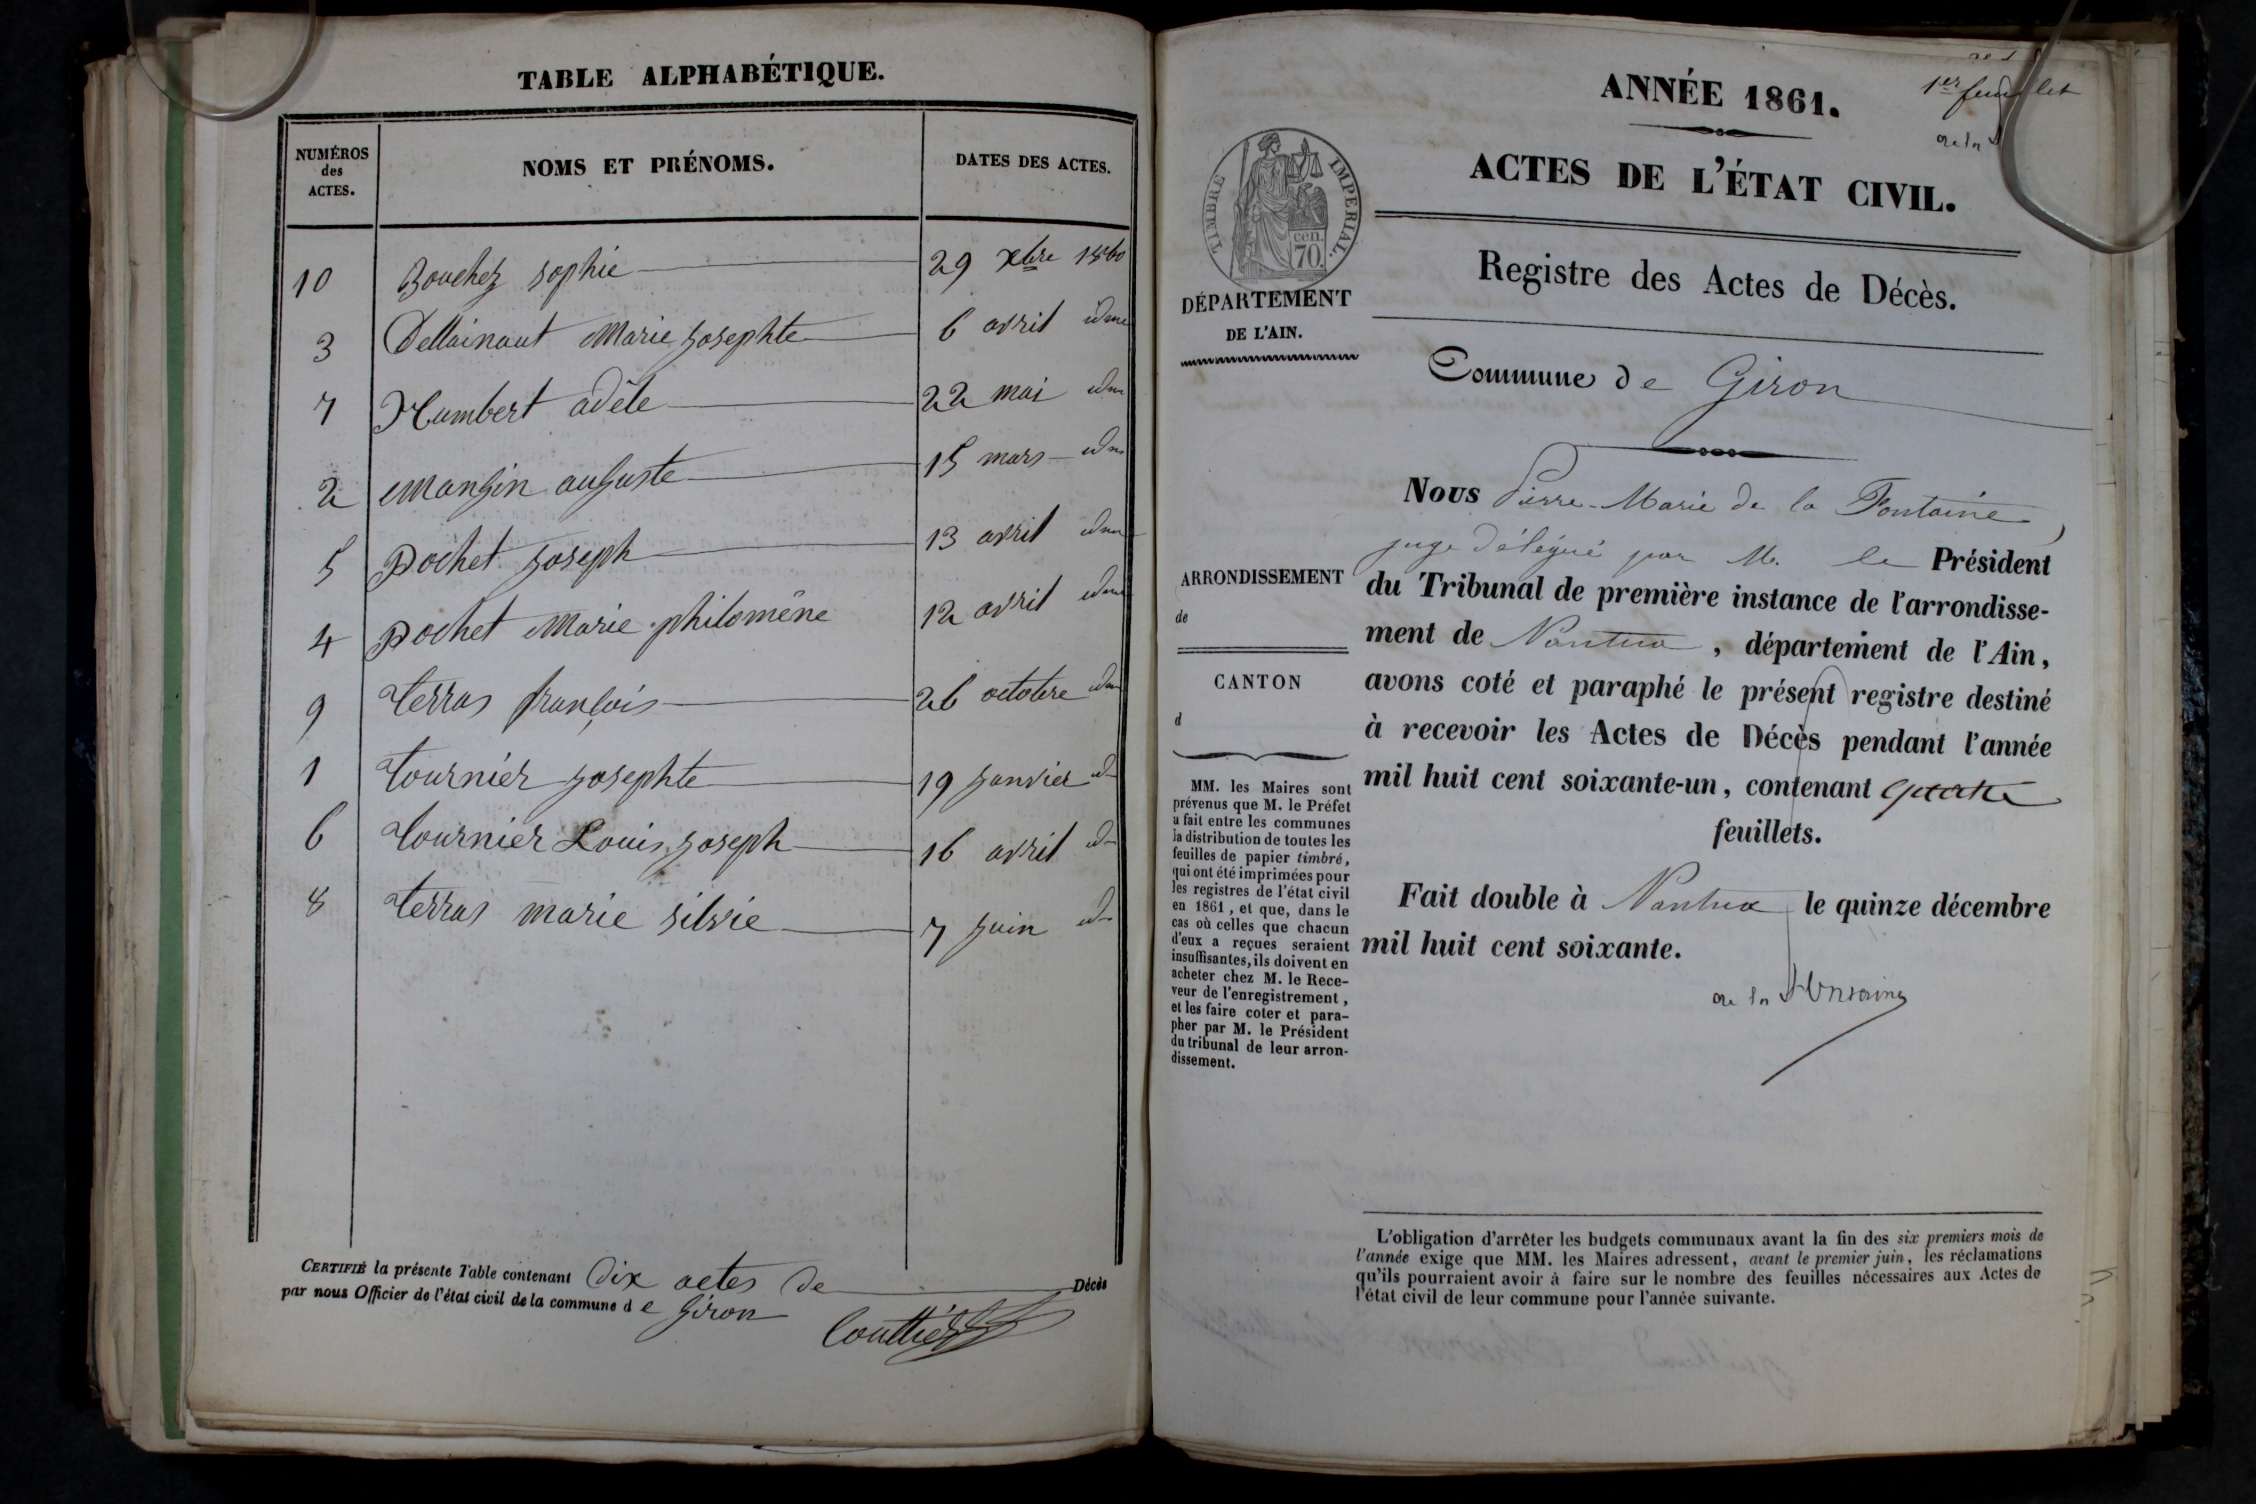 TABLE ALPHABÉTIQUE.
NUMÉROS
des
ACTES.
NOMS ET PRÉNOMS.
DATES DES ACTES.
10 Bouchez Sophie 29 Xbre 1860
3 Dellainaut Marie Josephte 6 avril idem
7 Humbert adèle 22 mai idm
2 Mangin auguste 15 mars idm
5 Pochet Joseph 13 avril idem
4 Pochet Marie philomène 12 avril idem
9 terras françois 26 octobre idm
1 tournier Josephte 19 Janvier id
6 tournier Louis Joseph 16 avril id
8 terras marie silvie 7 Juin id
CERTIFIÉ la présente Table contenant Dix actes De Décès
par nous Officier de l'état civil de la commune d e Giron
1er feuillet
de la
ANNÉE 1861.
ACTES DE L'ÉTAT CIVIL.
TIMBRE IMPERIAL.
cen.
70.
DÉPARTEMENT
DE L'AIN.
Registre des Actes de Décès.
Commune de Giron
Nous Pierre-Marie de la Fontaine,
juge délégué par M. le Président
du Tribunal de première instance de l'arrondisse-
ment de Nantua, département de l'Ain,
avons coté et paraphé le présent registre destiné
à recevoir les Actes de Décès pendant l'année
mil huit cent soixante-un, contenant quatre
feuillets.
Fait double à Nantua le quinze décembre
mil huit cent soixante.
de la Fontaine
ARRONDISSEMENT
de
CANTON
d
MM. les Maires sont
prévenus que M. le Préfet
a fait entre les communes
la distribution de toutes les
feuilles de papier timbré,
qui ont été imprimées pour
les registres de l'état civil
en 1861, et que, dans le
cas où celles que chacun
d'eux a reçues seraient
insuffisantes, ils doivent en
acheter chez M. le Rece-
veur de l'enregistrement,
et les faire coter et para-
pher par M. le Président
du tribunal de leur arron-
dissement.
L'obligation d'arrêter les budgets communaux avant la fin des six premiers mois de
l'année exige que MM. les Maires adressent, avant le premier juin, les réclamations
qu'ils pourraient avoir à faire sur le nombre des feuilles nécessaires aux Actes de
l'état civil de leur commune pour l'année suivante.